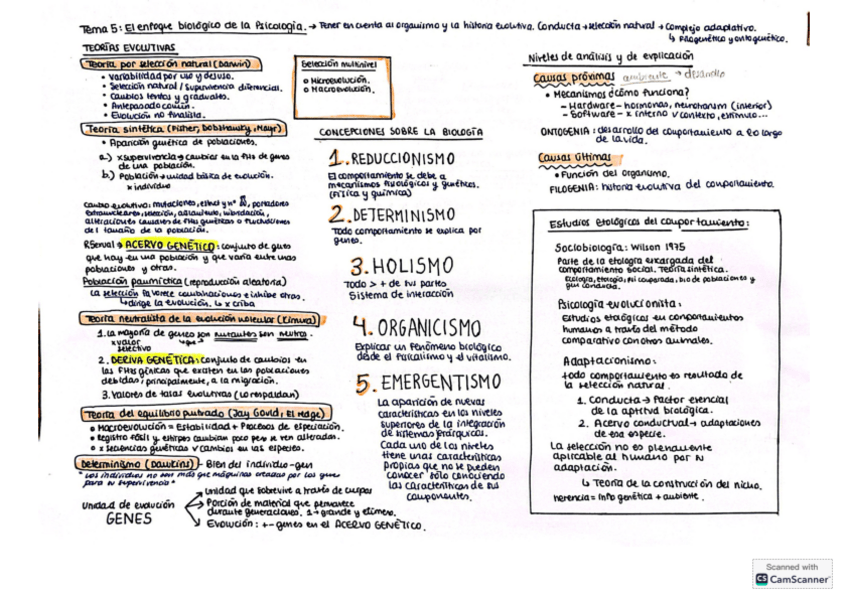 Tema 5: El enfoque biológico de la Psicología. → Tener en cuenta al organismo y la historia evolutiva. Conducta → selección natural → Complejo adaptativo.
↳ Filogenético y ontogenético.
TEORÍAS EVOLUTIVAS
Teoría por selección natural (Darwin)
• Variabilidad por uso y desuso.
• Selección natural / Supervivencia diferencial.
• Cambios lentos y graduales.
• Antepasado común.
• Evolución no finalista.
Teoría sintética (Fisher, Dobzhansky, Mayr)
• Aparición genética de poblaciones.
a.) x supervivencia → cambios en la frec de genes
de una población.
b.) Población → unidad básica de evolución.
x individuo
Cambio evolutivo: mutaciones,
extranucleares, selección, aislamiento, hibridación,
alteraciones casuales de frec genéticas o fluctuaciones
del tamaño de la población.
ACERVO GENÉTICO: conjunto de genes
que hay en una población y que varía entre unas
poblaciones y otras.
Población panmíctica (reproducción aleatoria)
La selección favorece combinaciones e inhibe otras.
↳ dirige la evolución. ↳ x criba
Teoría neutralista de la evolución molecular (Kimura)
1. La mayoría de genes son mutantes son neutros.
x valor
selectivo
2. DERIVA GENÉTICA: conjunto de cambios en
las frecs génicas que existen en las poblaciones
debidas, principalmente, a la migración.
3. Valores de tasas evolutivas (lo respaldan)
Teoría del equilibrio puntuado (Jay Gould, Eldredge)
• Macroevolución = Estabilidad + Procesos de especiación.
• Registro fósil y estirpes cambian poco pero se ven alteradas.
• x secuencias genéticas √ cambios en las especies.
Determinismo (Dawkins) - Bien del individuo-gen
"Los individuos no son más que máquinas creadas por los genes
para su supervivencia"
Unidad de evolución
GENES
Unidad que sobrevive a través de cuerpos
Porción de material que permanece
durante generaciones. 1→ grande y efímero.
Evolución: +- genes en el ACERVO GENÉTICO.
Selección multinivel
o Microevolución.
o Macroevolución.
CONCEPCIONES SOBRE LA BIOLOGÍA
1. REDUCCIONISMO
El comportamiento se debe a
mecanismos fisiológicos y genéticos.
(Física y química)
2. DETERMINISMO
Todo comportamiento se explica por
genes.
3. HOLISMO
Todo > + de tus partes
Sistema de interacción
4. ORGANICISMO
Explicar un fenómeno biológico
desde el fisicalismo y el vitalismo.
5. EMERGENTISMO
La aparición de nuevas
características en los niveles
superiores de la integración
de sistemas jerárquicos.
Cada uno de los niveles
tiene unas características
propias que no se pueden
conocer sólo conociendo
las características de sus
componentes.
Niveles de análisis y de explicación
Causas próximas ambiente → desarrollo
• Mecanismos ¿cómo funciona?
- Hardware - hormonas, neurotransm (interior)
- Software - x interno √ contexto, estímulo...
ONTOGENIA: desarrollo del comportamiento a lo largo
de la vida.
Causas últimas
• Función del organismo.
FILOGENIA: historia evolutiva del comportamiento.
Estudios etológicos del comportamiento:
Sociobiología: Wilson 1975
Parte de la etología encargada del
comportamiento social. Teoría sintética.
Ecología, etología, psi comparada, bio de poblaciones y
gen conducta.
Psicología evolucionista:
Estudios etológicos en comportamientos
humanos a través del método
comparativo con otros animales.
Adaptacionismo:
todo comportamiento es resultado de
la selección natural.
1. Conducta → Factor esencial
de la aptitud biológica.
2. Acervo conductual → adaptaciones
de esa especie.
La selección no es plenamente
aplicable al humano por su
adaptación.
↳ Teoría de la construcción del nicho.
herencia = info genética + ambiente.
Scanned with
CS CamScanner